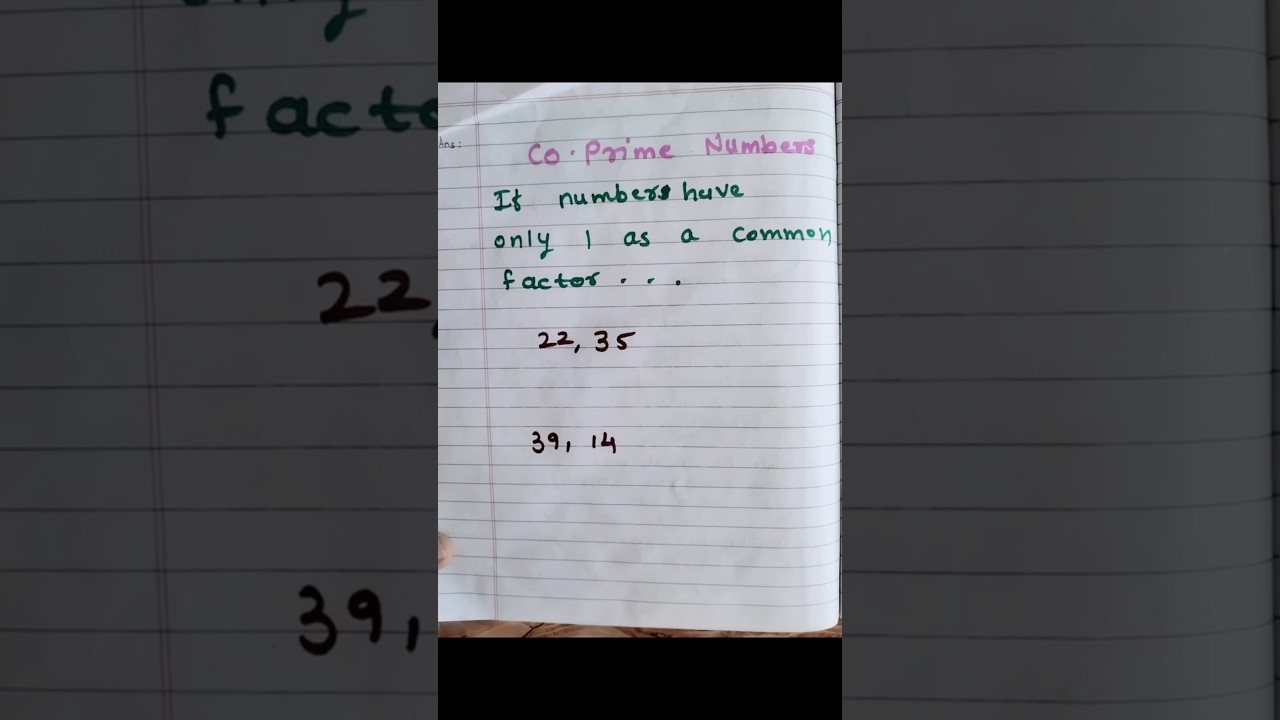 Ans:
Co.Prime Numbers
If numbers have
only 1 as a common
factor...
22, 35
39, 14